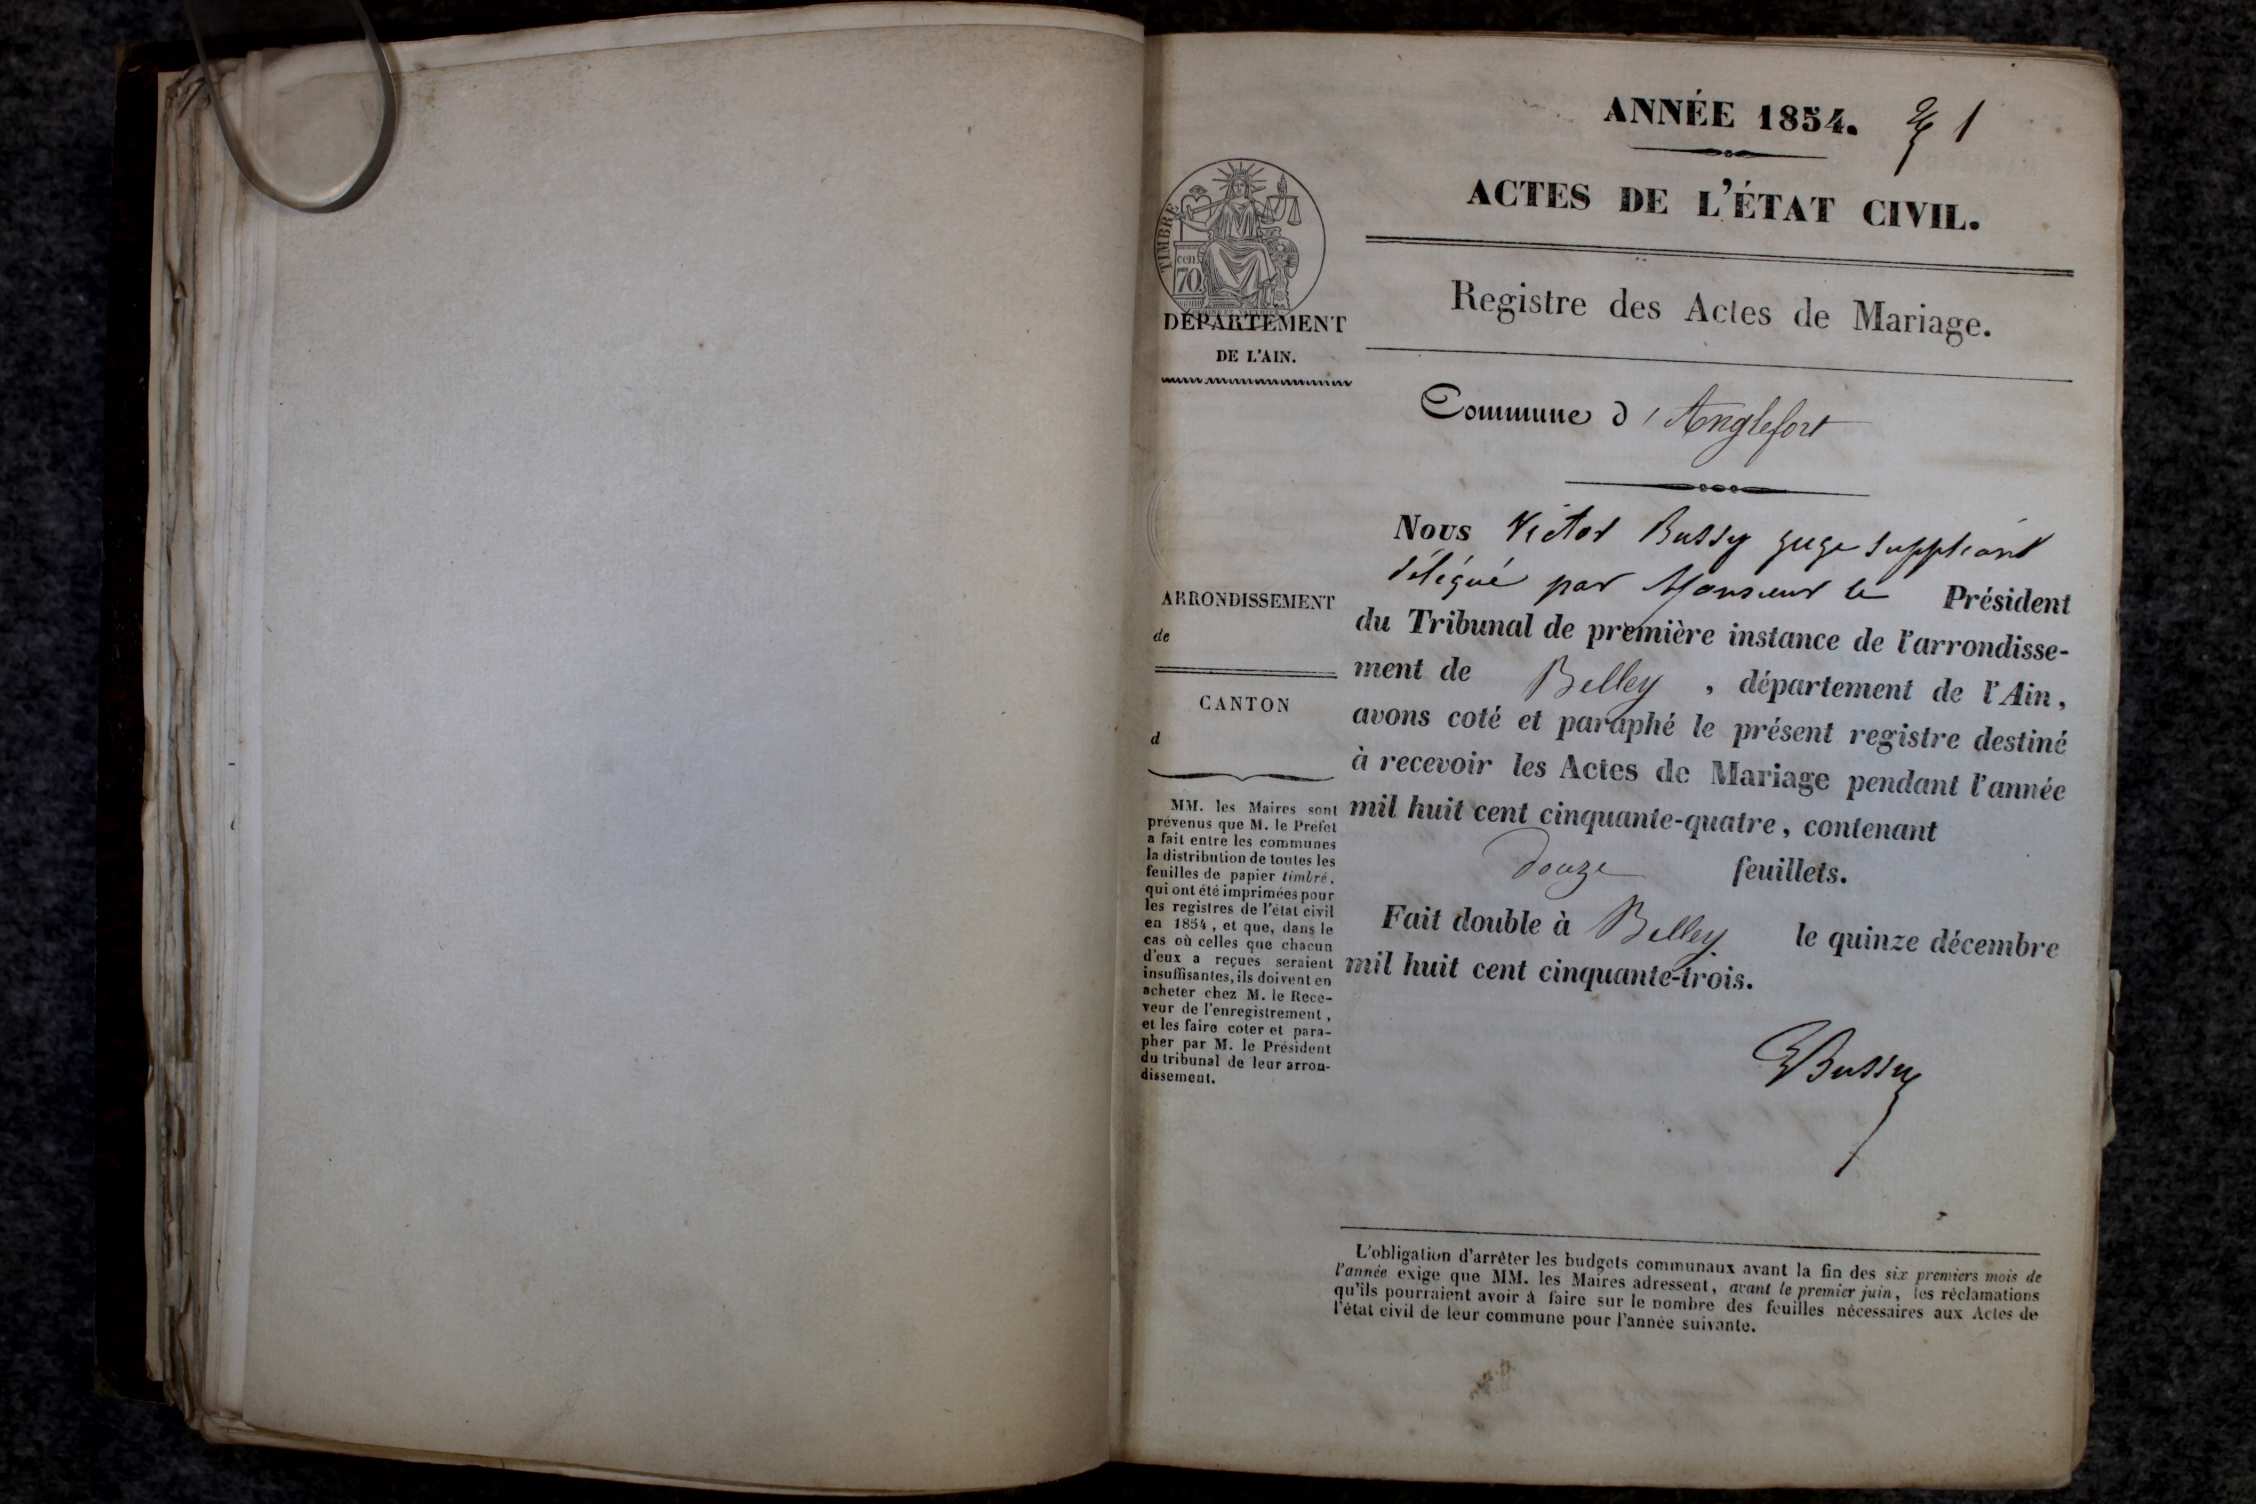 ANNÉE 1854. 1
ACTES DE L'ÉTAT CIVIL.
TIMBRE
cen.
70
DÉPARTEMENT
DE L'AIN.
Registre des Actes de Mariage.
Commune d'Anglefort
Nous Victor Bussy juge suppléant
délégué par Monsieur le Président
du Tribunal de première instance de l'arrondisse-
ment de Belley, département de l'Ain,
avons coté et paraphé le présent registre destiné
à recevoir les Actes de Mariage pendant l'année
mil huit cent cinquante-quatre, contenant
douze feuillets.
Fait double à Belley le quinze décembre
mil huit cent cinquante-trois.
Bussy
ARRONDISSEMENT
de
CANTON
d
MM. les Maires sont
prévenus que M. le Préfet
a fait entre les communes
la distribution de toutes les
feuilles de papier timbré,
qui ont été imprimées pour
les registres de l'état civil
en 1854, et que, dans le
cas où celles que chacun
d'eux a reçues seraient
insuffisantes, ils doivent en
acheter chez M. le Rece-
veur de l'enregistrement,
et les faire coter et para-
pher par M. le Président
du tribunal de leur arron-
dissement.
L'obligation d'arrêter les budgets communaux avant la fin des six premiers mois de
l'année exige que MM. les Maires adressent, avant le premier juin, les réclamations
qu'ils pourraient avoir à faire sur le nombre des feuilles nécessaires aux Actes de
l'état civil de leur commune pour l'année suivante.